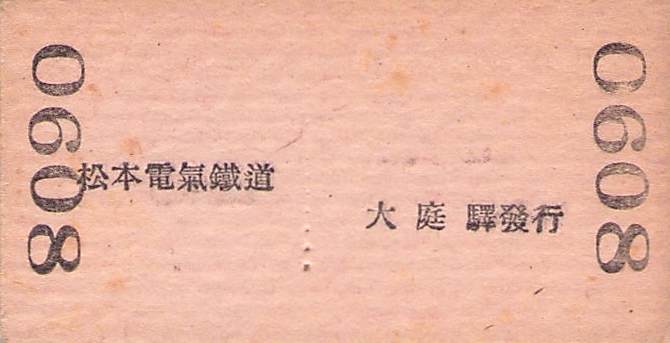 0608
松本電氣鐵道
大庭 驛發行
0608